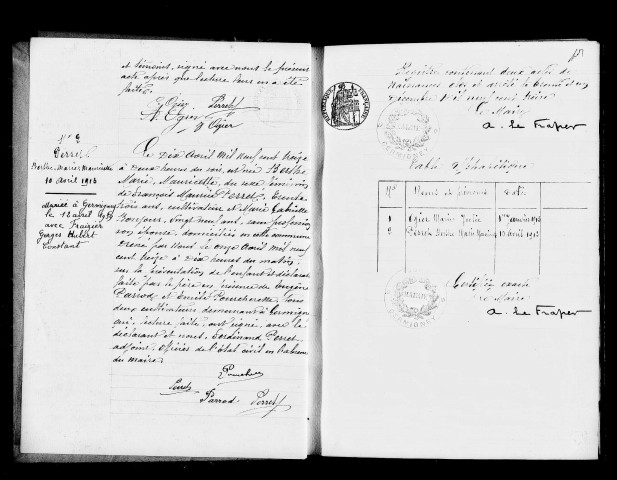 et témoins, signé avec nous le présent
acte après que lecture leur en a été
faite.
Ogier Perret
A. Ogier
Ogier
N° 2
Perret
Berthe Marie Mauricette
10 avril 1913
Mariée à Germigney
le 12 avril
avec Frazier
Georges Hubert
Constant
Le Dix Avril Mil neuf cent treize
à Deux heures du soir, est née Berthe
Marie, Mauricette, du sexe féminin,
de François Maurice Perret, trente
trois ans, cultivateur et Marie
vingt neuf ans, sans profession
son épouse, domiciliés en cette commune
Dressé par Nous le onze Avril Mil neuf
cent treize à Dix heures du matin,
sur la présentation de l'enfant et déclaration
faite par le père en présence de Eugène
Parrod et Emile Poucherotte tous
deux cultivateurs demeurant à Germigney
qui, lecture faite, ont signé avec le
déclarant et nous, Ferdinand Perret
adjoint, officier de l'état civil en l'absence
du maire.
Perret
Parrod Perret
Registre contenant deux actes de
naissances clos et arrêté le trente et un
Décembre mil neuf cent treize
Le Maire
A. Le Traper
MAIRIE
Table Alphabétique
Nos Noms et prénoms Dates
1 Ogier Marie
2 Perret Berthe Marie Mauricette 10 avril 1913
Certifiée exacte
Le Maire
A. Le Traper
MAIRIE